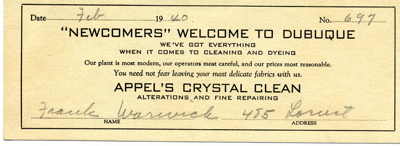 Date Feb 1940. No. 697
"NEWCOMERS" WELCOME TO DUBUQUE
WE'VE GOT EVERYTHING
WHEN IT COMES TO CLEANING AND DYEING
Our plant is most modern, our operators most careful, and our prices most reasonable.
You need not fear leaving your most delicate fabrics with us.
APPEL'S CRYSTAL CLEAN
ALTERATIONS AND FINE REPAIRING
Frank Warwick 485 Locust
NAME ADDRESS